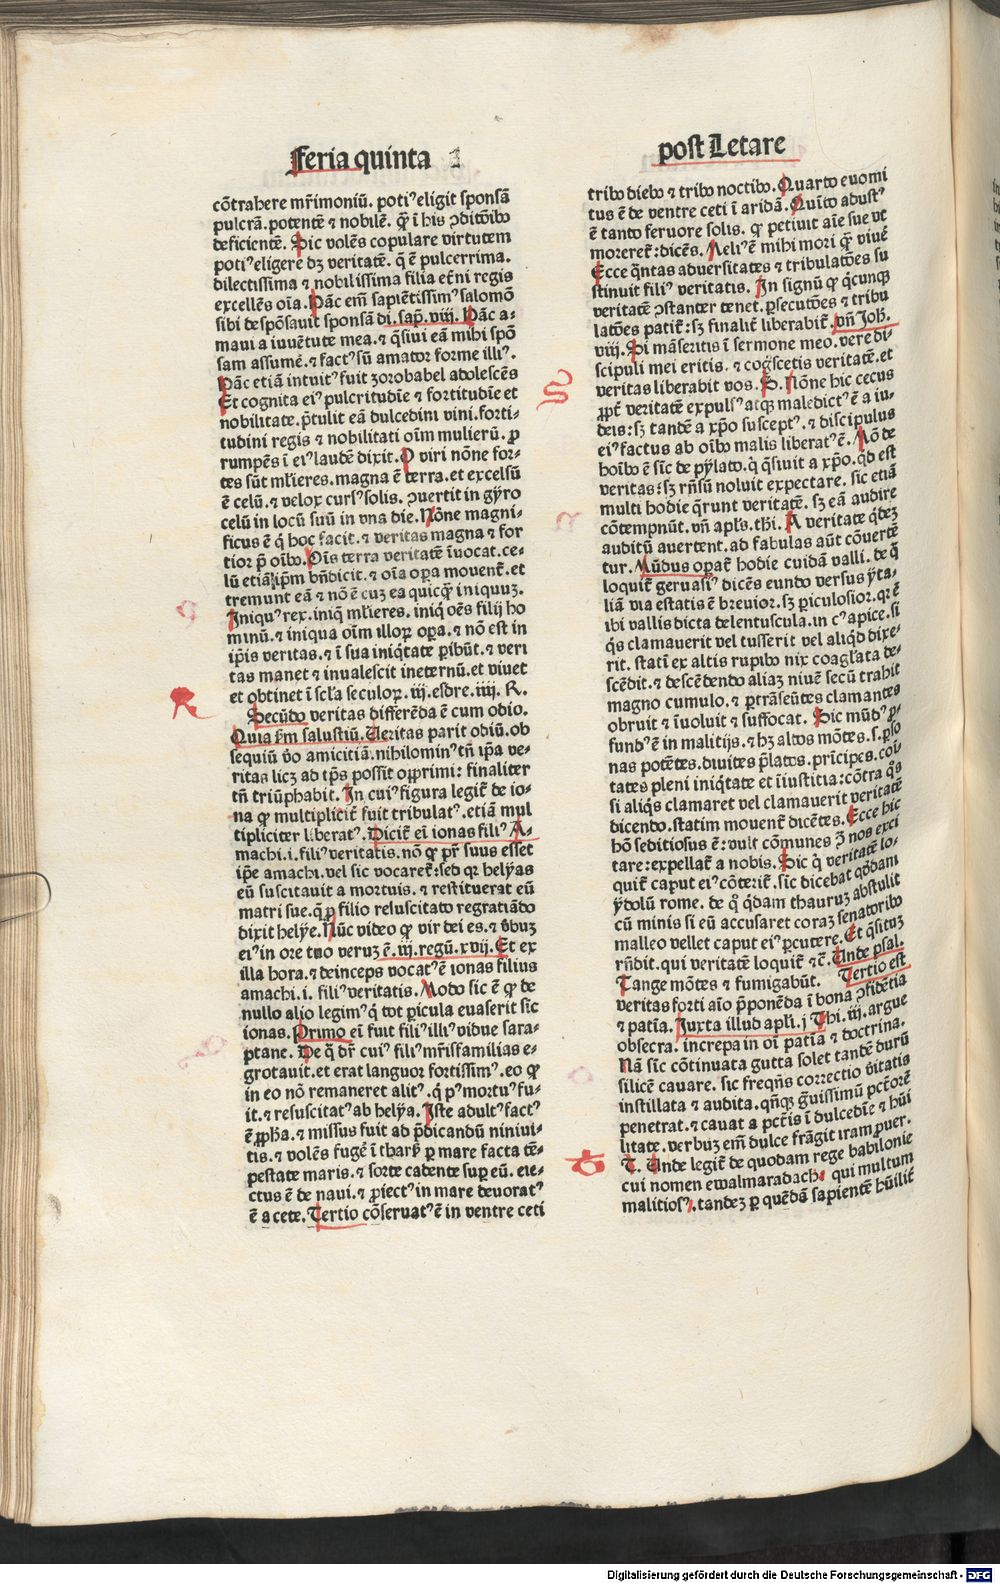 Feria quinta
cōtrahere mr̄imoniū. potiꝰ eligit sponsā
pulcrā. potentē ⁊ nobilē. qꝛ̄ ī his ↄditōibꝰ
deficientē. Sic volēs copulare virtutem
potiꝰ eligere dꝫ veritatē. q̄ ē pulcerrima.
dilectissima ⁊ nobilissima filia et̄ni regis
excellēs oīa. Hāc em̄ sapiētissimꝰ salomō
sibi despōsauit sponsā di. sap̄. viij. Hāc a-
maui a iuuētute mea. ⁊ q̄siui eā mihi spō
sam assumē. ⁊ factꝰ sū amator forme illiꝰ.
Hāc etiā intuitꝰ fuit zorobabel adolescēs
Et cognita eiꝰ pulcritudīe ⁊ fortitudīe et
nobilitate. p̄tulit eā dulcedini vini. forti-
tudini regis ⁊ nobilitati oīm mulierū. ꝓ
rumpēs ī eiꝰ laudē dixit. O viri nōne for-
tes sūt ml̄ieres. magna ē terra. et excelsū
ē celū. ⁊ velox cursꝰ solis. ↄuertit in gẏro
celū in locū suū in vna die. Nōne magni-
ficus ē q̇ hoc facit. ⁊ veritas magna ⁊ for
tior p̄ oībꝰ. Oīs terra veritatē īuocat. ce-
lū etiā ip̄m bn̄dicit. ⁊ oīa oꝑa mouent̄. et
tremunt eā ⁊ nō ē cuꝫ ea quicq̄ iniquuꝫ.
Iniquꝰ rex. iniq̄ ml̄ieres. iniq̇ oēs filij ho
minū. ⁊ iniqua oīm illoꝝ oꝑa. ⁊ nō est in
ip̄is veritas. ⁊ ī sua iniq̇tate ꝑibūt. ⁊ veri
tas manet ⁊ inualescit ineternū. et viuet
et obtinet ī scl̄a seculoꝝ. iij. esdre. iiij. R.
Secūdo veritas differēda ē cum odio.
Quia ẜm salustiū. Veritas parit odiū. ob
sequiū v̄o amicitiā. nihilominꝰ tn̄ ip̄a ve-
ritas licꝫ ad tp̄s possit opprimi: finaliter
tn̄ triūphabit. In cuiꝰ figura legit̄ de io-
na qꝛ multiplicit̄ fuit tribulatꝰ. etiā mul
tipliciter liberatꝰ. Dicit̄ em̄ ionas filiꝰ A-
machi. i. filiꝰ veritatis. nō qꝛ pr̄ suus esset
ip̄e amachi. vel sic vocaret̄: sed qꝛ helẏas
eū suscitauit a mortuis. ⁊ restituerat eū
matri sue. q̄ ꝓ filio resuscitato regratiādo
dixit helẏe. Nūc video qꝛ vir dei es. ⁊ v̄buꝫ
eiꝰ in ore tuo veruꝫ ē. iij. regū. xvij. Et ex
illa hora. ⁊ deinceps vocatꝰ ē ionas filius
amachi. i. filiꝰ veritatis. Modo sic ē qꝛ de
nullo alio legimꝰ q̇ tot ꝑicula euaserit sic
ionas. Primo em̄ fuit filiꝰ illiꝰ vidue sara-
ptane. De q̄ dr̄ cuiꝰ filiꝰ mr̄isfamilias e-
grotauit. et erat languor fortissimꝰ. eo qꝛ
in eo nō remaneret alitꝰ. q̇ pꝰ mortuꝰ fu-
it. ⁊ resuscitatꝰ ab helẏa. Iste adultꝰ factꝰ
ē ꝓpha. ⁊ missus fuit ad p̄dicandū niniui-
tis. ⁊ volēs fugē ī tharß ꝑ mare facta tē-
pestate maris. ⁊ sorte cadente suꝑ eū. eie-
ctus ē de naui. ⁊ ꝓiectꝰ in mare deuoratꝰ
ē a cete. Tertio cōseruatꝰ ē in ventre ceti
post Letare
tribꝰ diebꝰ ⁊ tribꝰ noctibꝰ. Quarto euomi
tus ē de ventre ceti ī aridā. Quīto adustꝰ
ē tanto feruore solis. qꝛ petiuit aīe sue vt
moreret̄: dicēs. Meliꝰ ē mihi mori qꝛ̄ viuē
Ecce q̄ntas aduersitates ⁊ tribulatōes su
stinuit filiꝰ veritatis. In signū qꝛ q̇cunqꝫ
veritatē ↄstanter tenet. ꝑsecutōes ⁊ tribu
latōes patit̄: sꝫ finalit̄ liberabit̄. vn̄ Joh̄.
viij. Si māseritis ī sermone meo. vere di-
scipuli mei eritis. ⁊ coḡscetis veritatē. et
veritas liberabit vos. S. Nōne hic cecus
ꝓpt̄ veritatē expulsꝰ atqꝫ maledictꝰ ē a iu-
deis: sꝫ tandē a xp̄o susceptꝰ. ⁊ discipulus
eiꝰ factus ab oībꝰ malis liberatꝰ ē. Mō de
hoībꝰ ē sic de pẏlato. q̇ q̄siuit a xp̄o. qd̄ est
veritas: sꝫ rn̄sū noluit expectare. sic etiā
multi hodie q̄runt veritatē. sꝫ eā audire
cōtempnūt. vn̄ apl̄s. thi. A veritate q̇deꝫ
auditū auertent. ad fabulas aūt cōuertē
tur. Mūdus oꝑat̄ hodie cuidā valli. de q̄
loquit̄ geruasiꝰ dicēs eundo versus ẏta-
liā via estatis ē breuior. sꝫ ꝑiculosior. qꝛ ē
ibi vallis dicta delentuscula. in cꝰ apice. si
q̇s clamauerit vel tusserit vel aliqd̄ dixe-
rit. statī ex altis rupibꝰ nix coagl̄ata de-
scēdit. ⁊ descēdendo aliaꝫ niuē secū trahit
magno cumulo. ⁊ ꝑtrāseūtes clamantes
obruit ⁊ īuoluit ⁊ suffocat. Sic mūdꝰ ꝓ-
fundꝰ ē in malitijs. ⁊ hꝫ altos mōtes. s. ꝑso
nas potētes. diuites p̄latos. prīcipes. coī-
tates pleni iniq̇tate et īiustitia: cōtra q̇s
si aliq̇s clamaret vel clamauerit veritatē
dicendo. statim mouent̄ dicētes. Ecce hic
hō seditiosus ē: vult cōmunes ↄ̄ nos exci
tare: expellat̄ a nobis. Sic q̇ veritatē lo-
quit̄ caput eiꝰ cōterit̄. sic dicebat qd̄dam
ẏdolū rome. de qͦ q̇dam thauruꝫ abstulit
cū minis si eū accusaret coraꝫ senatoribꝰ
malleo vellet caput eiꝰ ꝑcutere. Et q̄situꝫ
rn̄dit. qui veritatē loquit̄ ⁊c̄. Unde psal.
Tange mōtes ⁊ fumigabūt. Tertio est
veritas forti aīo p̄ponēda ī bona ↄfidētia
⁊ patīa. Juxta illud apl̄i. j Thi. iij. argue
obsecra. increpa in oī patīa ⁊ doctrina.
Nā sic cōtinuata gutta solet tandē durū
silicē cauare. sic freqn̄s correctio v̄itatis
instillata ⁊ audita. qn̄qꝫ g̊uissimū pctōrē
penetrat. ⁊ cauat a pctīs ī dulcedīe ⁊ hūi
litate. verbuꝫ em̄ dulce frāgit iram ꝓuer.
T. Unde legit̄ de quodam rege babilonie
cui nomen ewalmaradach. qui multum
malitiosꝰ. tandeꝫ ꝑ quēdā sapientē hūilit̄
S
R
T
Digitalisierung gefördert durch die Deutsche Forschungsgemeinschaft - DFG